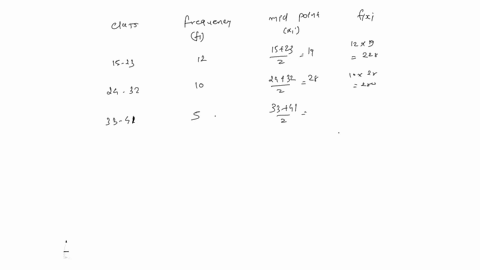 class frequency (fi) mid point (xi) fixi
15-23 12 15+23/2 = 19 12 x 19 = 228
24-32 10 24+32/2 = 28 10 x 28 = 280
33-41 5 33+41/2 =